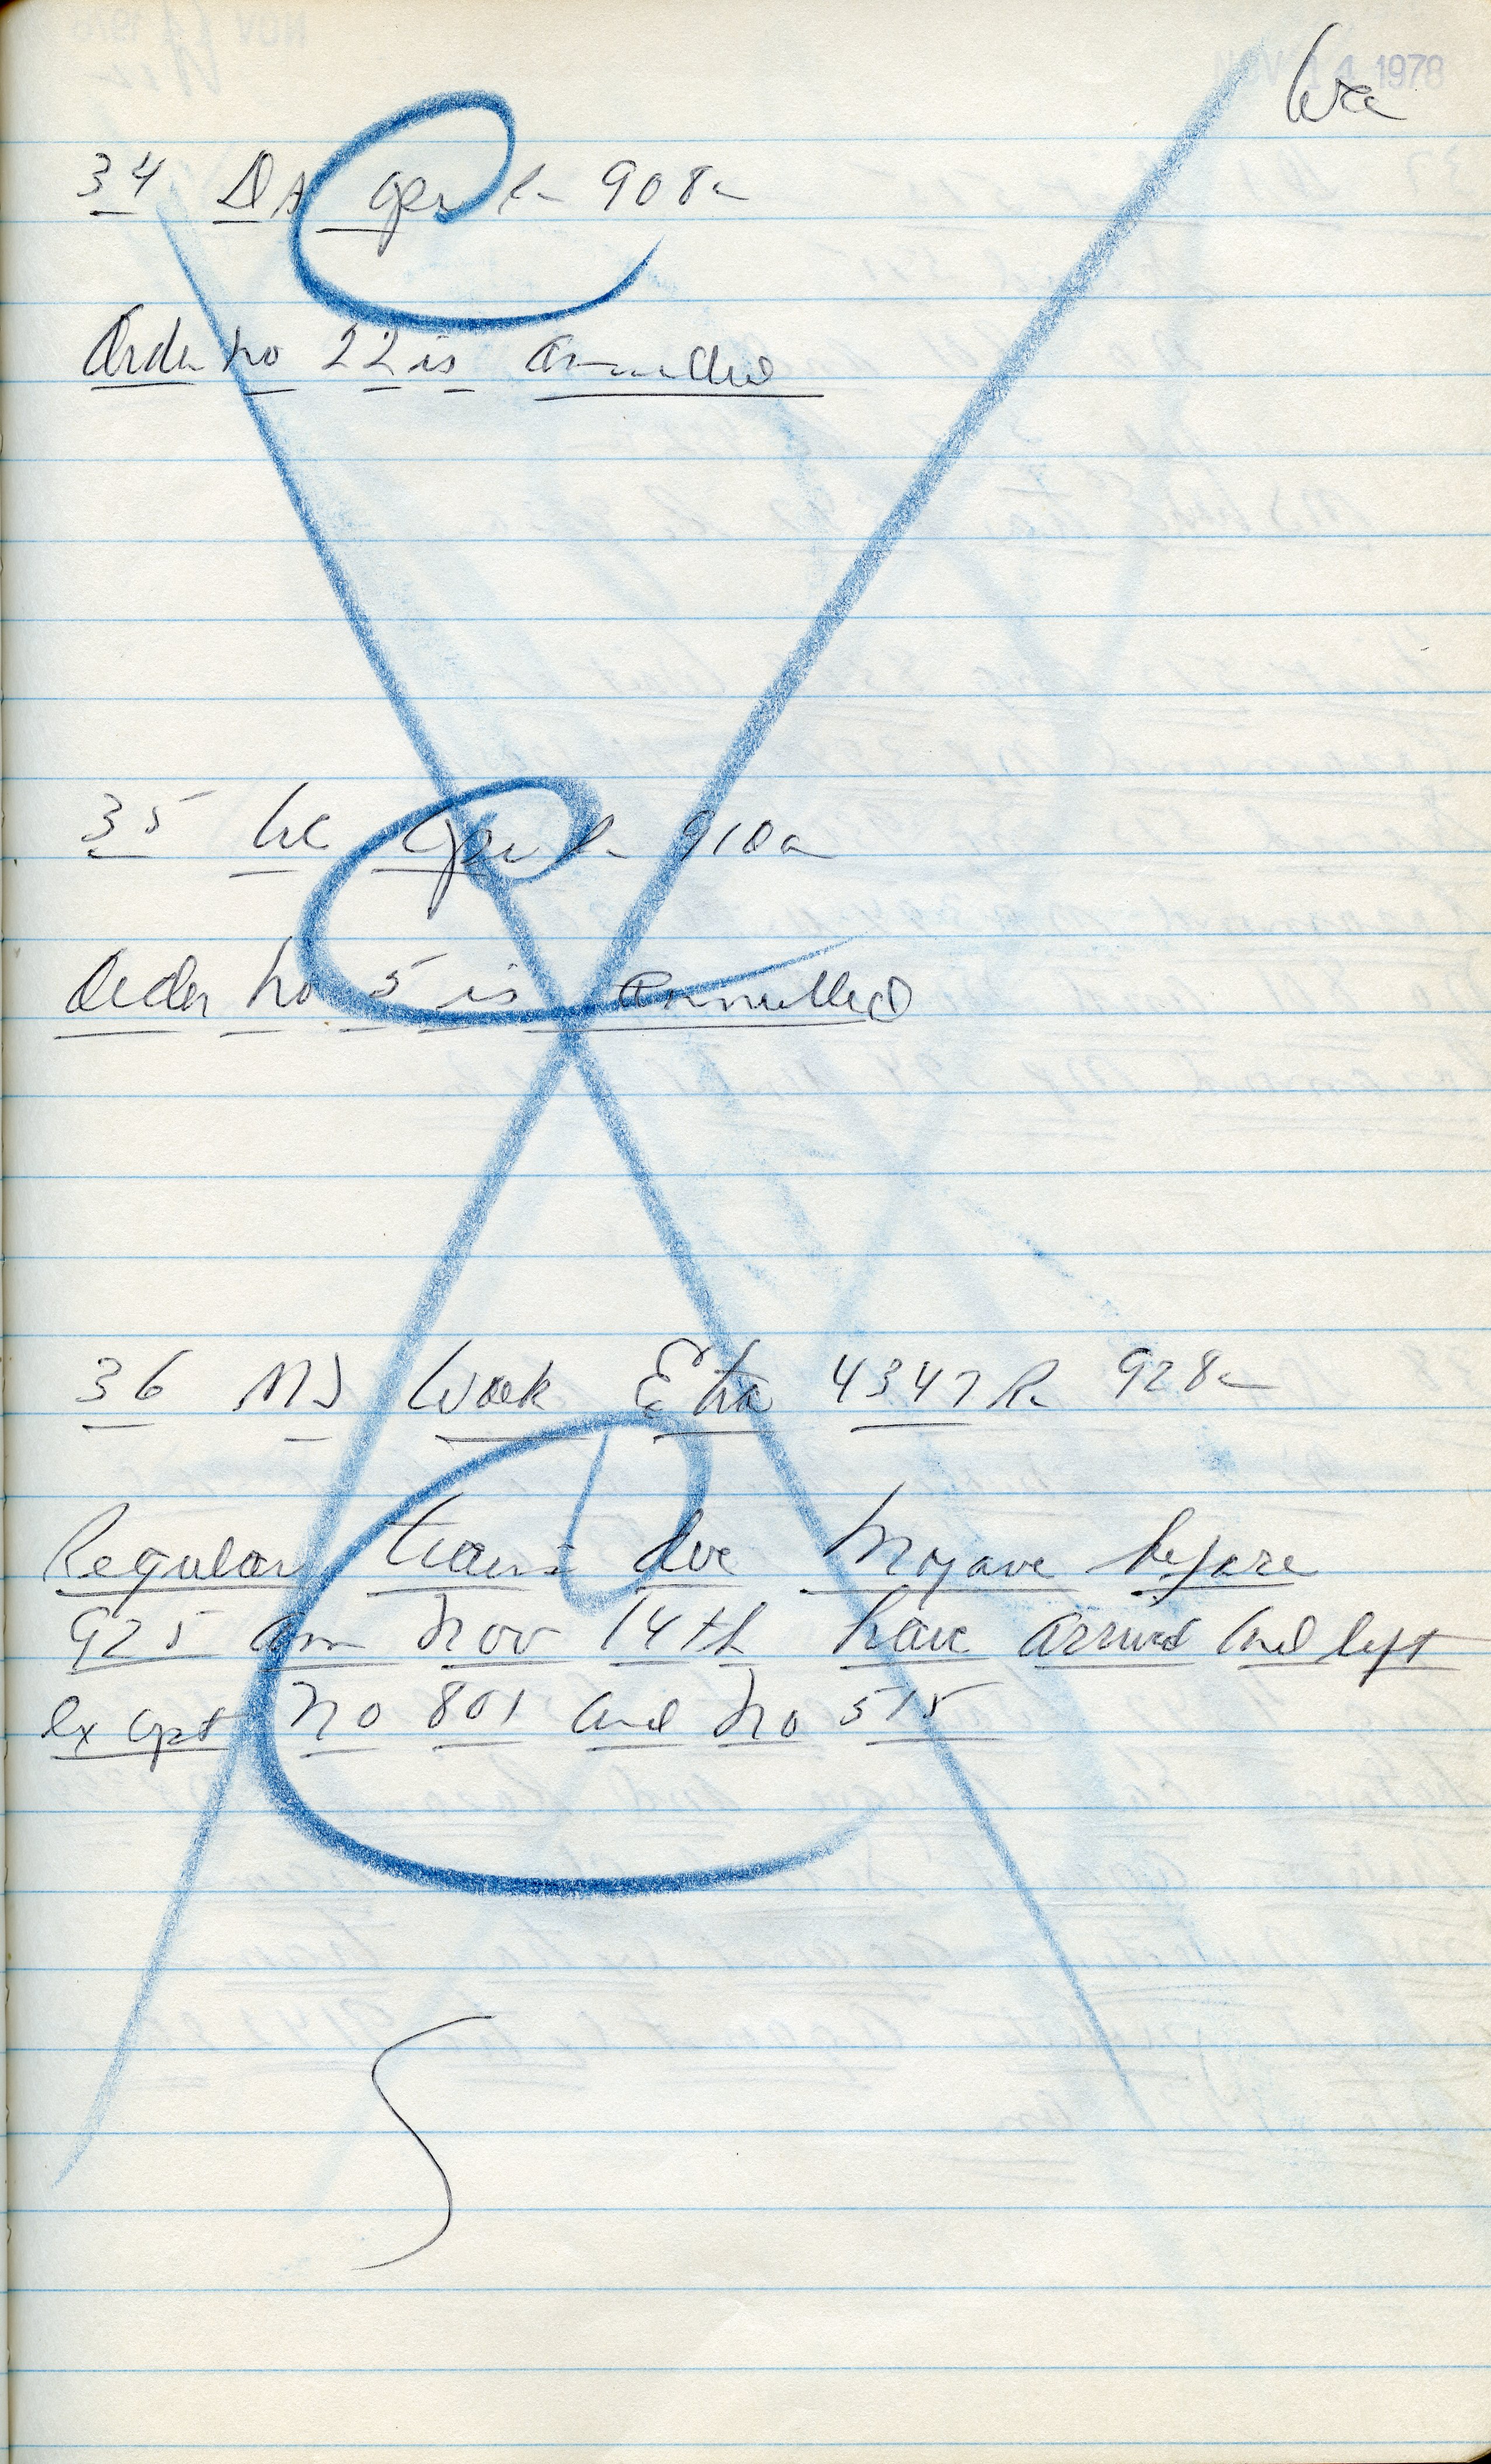 NOV 14 1978
34 DS Opr Rn 908a
Order No 22 is annulled
35 Opr Rn 910a
Order No 5 is annulled
36 MJ Work Extra 4347 Rn 928a
Regular trains due Mojave before
925 am Nov 14th have arrived and left
except No 801 and No 515